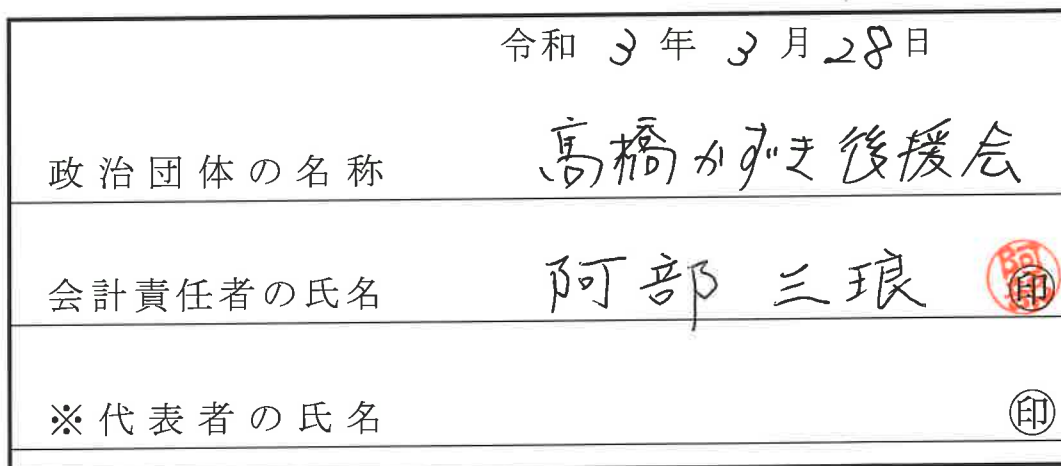 令和 3 年 3 月 28 日
政治団体の名称 髙橋かずき後援会
会計責任者の氏名 阿部 三琅 ㊞
※代表者の氏名 ㊞